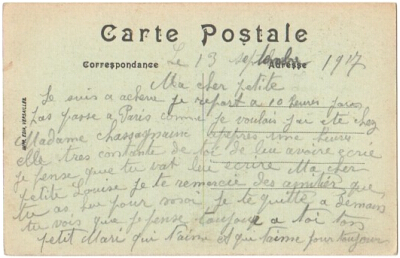 Carte Postale
Correspondance
Adresse
Le 13 septembre 1917
Ma cher petite
Je suis a achere je repart a 10 heures jaros
pas passe a Paris comme je voulais j'ai ete chez
Madame chassagnaine appres une heures
elle tres contante de toi de leu avoire ecrie
je pense que tu vat lui ecrire Ma cher
petite Louise je te remercie des amitiés que
tu as eue pour moi je te quitte a demain
tu vois que je pense toujour a toi ton
petit Mari qui t'aime et qui t'aime pour toujour